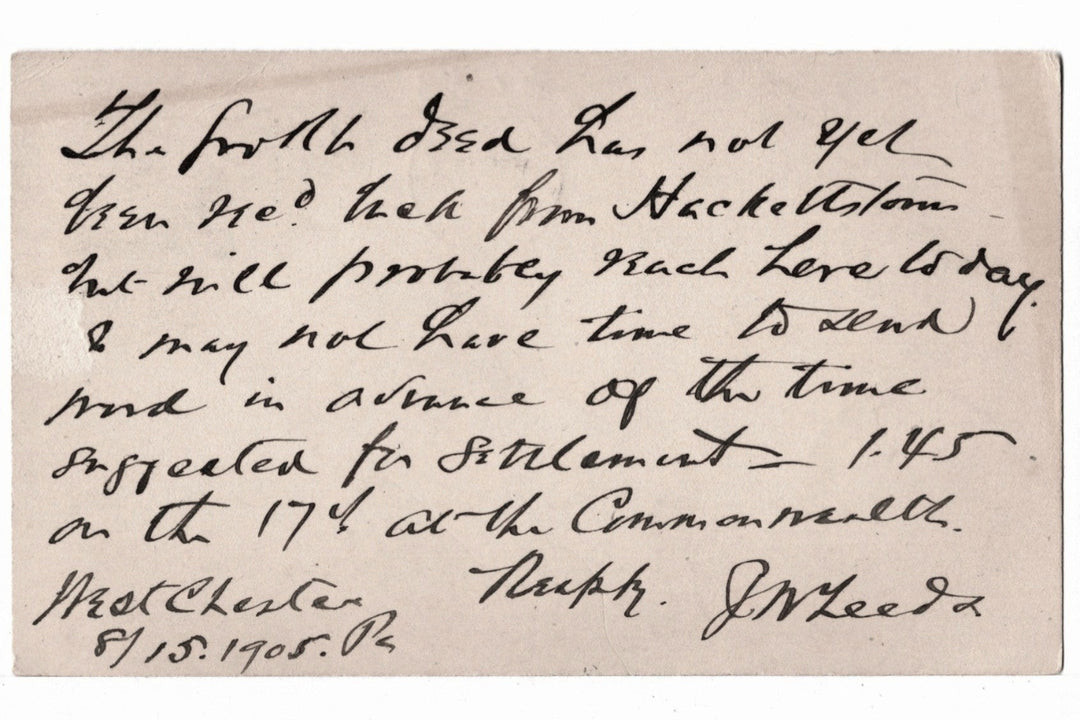 The fourth deed has not yet
been rec'd back from Hackettstown -
but will probably reach here today.
I may not have time to send
word in advance of the time
suggested for settlement - 1.45
on the 17th at the Commonwealth.
West Chester Respy. J W Leeds
8/15.1905. Pa